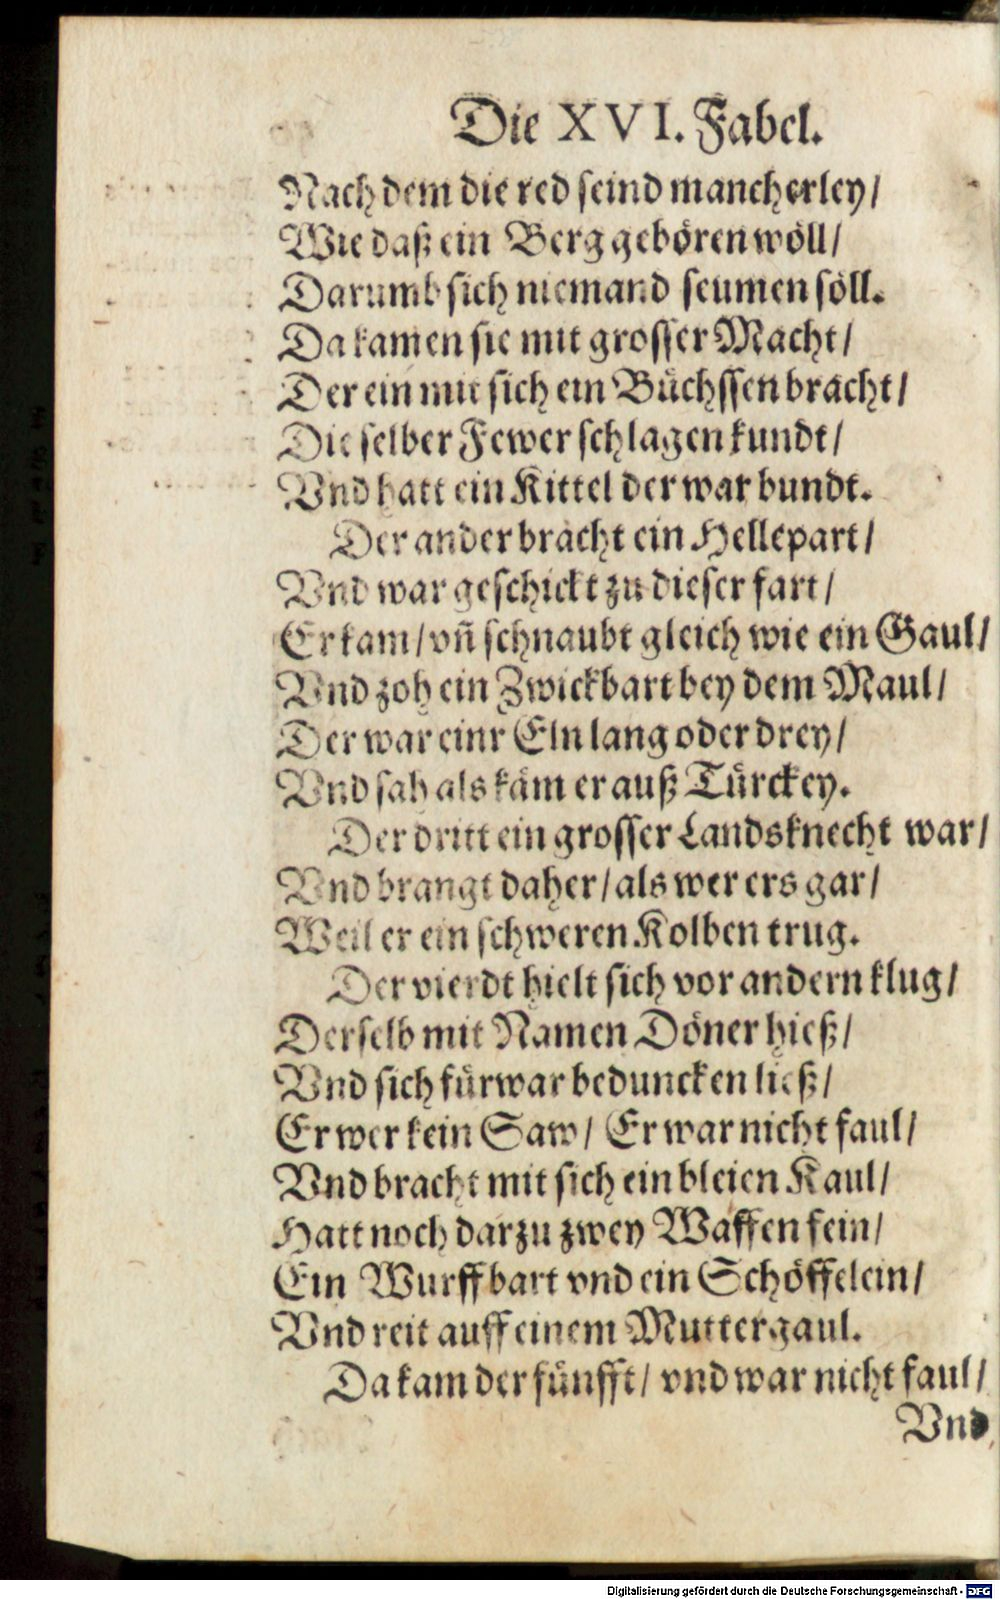 Die XVI. Fabel.
Nach dem die red seind mancherley/
Wie daß ein Berg gebören wöll/
Darumb sich niemand seumen söll.
Da kamen sie mit grosser Macht/
Der ein mit sich ein Büchssen bracht/
Die selber Fewer schlagen kundt/
Vnd hatt ein Kittel der war bundt.
Der ander bracht ein Hellepart/
Vnd war geschickt zu dieser fart/
Er kam/ vñ schnaubt gleich wie ein Gaul/
Vnd zoh ein Zwickbart bey dem Maul/
Der war einr Eln lang oder drey/
Vnd sah als käm er auß Türckey.
Der dritt ein grosser Landsknecht war/
Vnd brangt daher/ als wer ers gar/
Weil er ein schweren Kolben trug.
Der vierdt hielt sich vor andern klug/
Derselb mit Namen Döner hieß/
Vnd sich fürwar beduncken ließ/
Er wer kein Saw/ Er war nicht faul/
Vnd bracht mit sich ein bleien Kaul/
Hatt noch darzu zwey Waffen fein/
Ein Wurffbart vnd ein Schöffelein/
Vnd reit auff einem Muttergaul.
Da kam der fünfft/ vnd war nicht faul/
Vnd
Digitalisierung gefördert durch die Deutsche Forschungsgemeinschaft - DFG